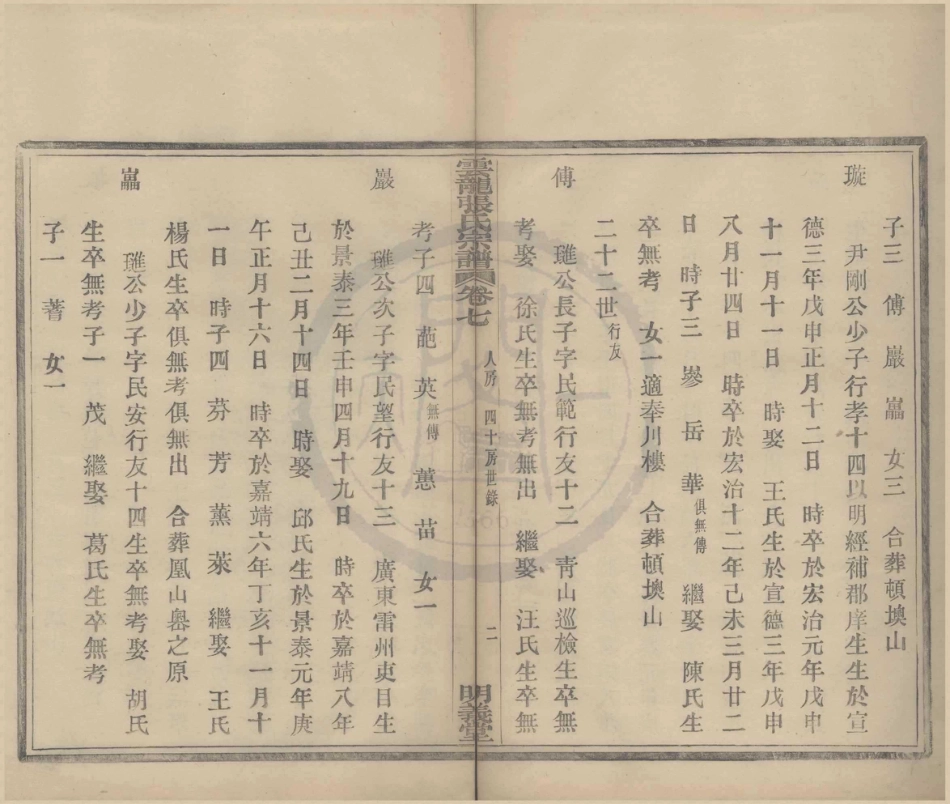 子三　傅　巖　巂　女三　合葬頓墺山
璇
尹剛公少子行孝十四以明經補郡庠生生於宣
德三年戊申正月十二日　時卒於宏治元年戊申
十一月十一日　時娶　王氏生於宣德三年戊申
八月廿四日　時卒於宏治十二年己未三月廿二
日　時子三　嵾　岳　華俱無傳　繼娶　陳氏生
卒無考　女一適奉川樓　合葬頓墺山
二十二世行友
傅
璡公長子字民範行友十二　青山巡檢生卒無
考娶　徐氏生卒無考無出　繼娶　汪氏生卒無
雲龍張氏宗譜　卷七　人房　四十房世錄　二　明義堂
考子四　葩　英無傳　蕙　苗　女一
巖
璡公次子字民望行友十三　廣東雷州吏目生
於景泰三年壬申四月十九日　時卒於嘉靖八年
己丑二月十四日　時娶　邱氏生於景泰元年庚
午正月十六日　時卒於嘉靖六年丁亥十一月十
一日　時子四　芬　芳　薰　萊　繼娶　王氏
楊氏生卒俱無考俱無出　合葬凰山嶴之原
巂
璡公少子字民安行友十四生卒無考娶　胡氏
生卒無考子一　茂　繼娶　葛氏生卒無考
子一　蓍　女一